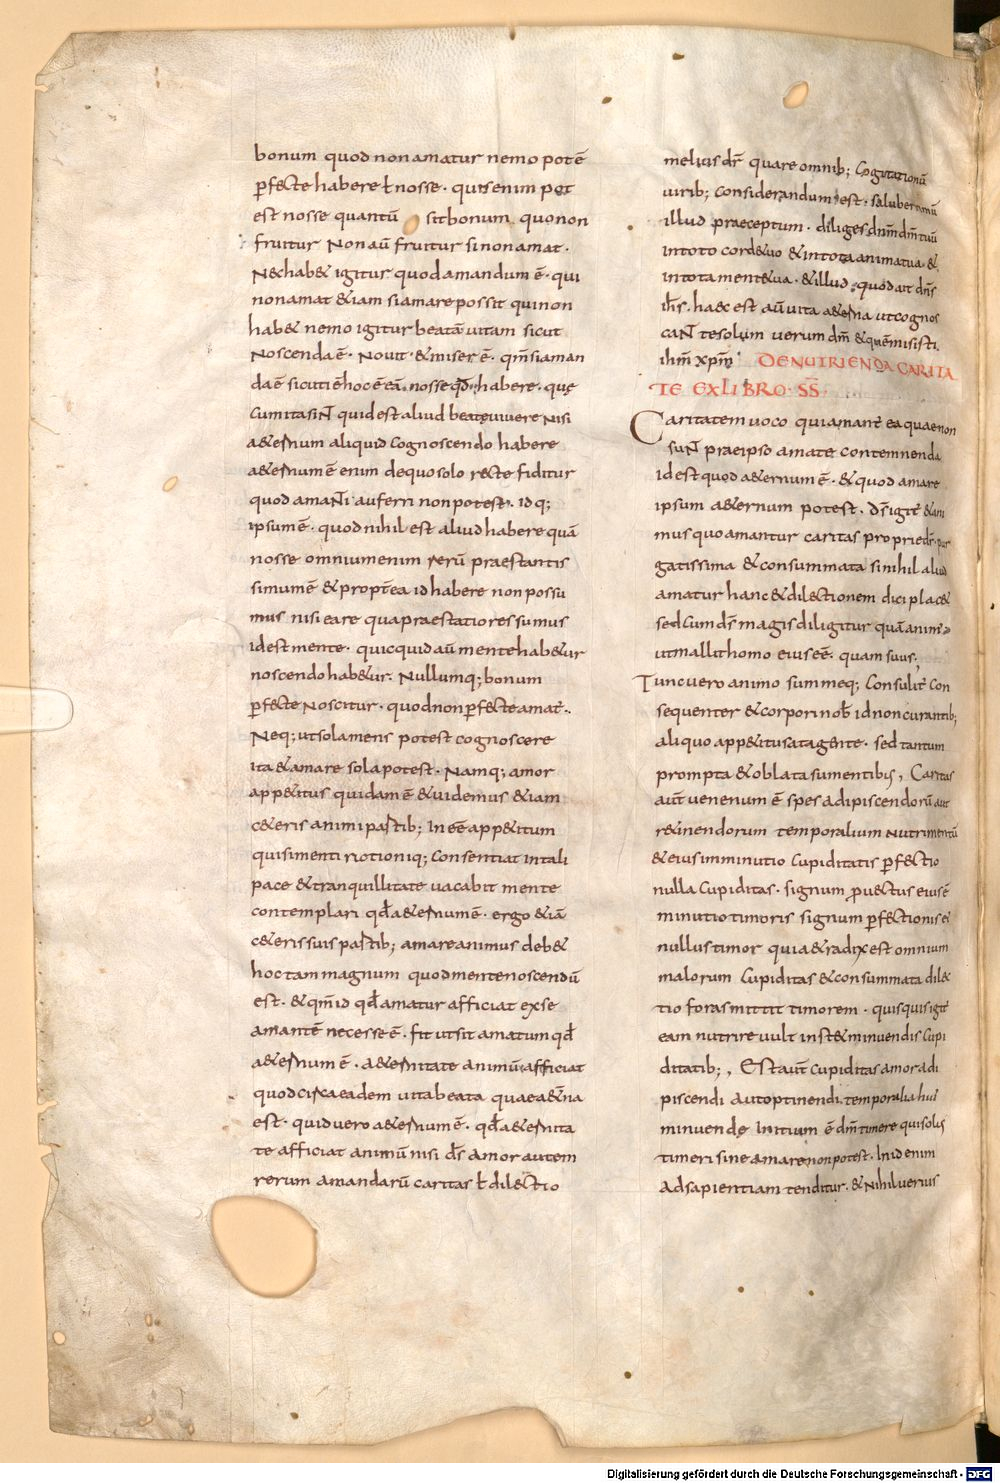 bonum quod non amatur nemo potē
ꝑfecte habere ł nosse · quis enim pot
est nosse quantū sit bonum quo non
fruitur Non aū fruitur si non amat ·
Nec hab& igitur quod amandum ē · qui
non amat &iam si amare possit qui non
hab& nemo igitur beatā uitam sicut
Noscenda ē · Nouit · & miser ē · qm̄ si aman
da ē sicuti ē hoc ē eā nosse qđ habere · quę
Cum ita siNt quid est aliud beatę uiuere Nisi
a&ernum aliquid Cognoscendo habere
a&ernum ē enim de quo solo recte fiditur
quod amaNti auferri non potest · idq;
ipsum ē · quod nihil est aliud habere quā
nosse omnium enim rerū praestantis
simum ē & propt̄ea id habere non possu
mus nisi ea re qua praestatiores sumus
id est mente · quicquid aū mente hab&ur
noscendo hab&ur · Nullumq; bonum
ꝑfecte Noscitur · quod non ꝑfecte amat̄ ..
Neq; ut sola mens potest cognoscere
ita & amare sola potest · Namq; amor
app&itus quidam ē & uidemus &iam
c&eris animi partib; in eē app&itum
qui si menti rationiq; Consentiat in tali
pace & tranquillitate uacabit mente
contemplari qđ a&ernum ē · ergo &iā
c&eris suis partib; amare animus deb&
hoc tam magnum quod mente noscendū
est · & qm̄ id qđ amatur afficiat ex se
amantē necesse ē · fit ut sit amatum qđ
a&ernum ē · a&ernitate animū afficiat
quocirca eadem uita beata quae a&n̄a
est · quid uero a&ernum ē · qđ a&ernita
te afficiat animū nisi dſ̄ amor autem
rerum amandarū caritas ł dilectio
melius dr̄ quare omnib; Cogitationū
uirib; considerandum est · saluberrimū
illud praeceptum · diliges dnm̄ dm̄ tuū
in toto corde tuo & in tota anima tua &
in tota mente tua · & illud quod ait dn̄s
ih̄s · haec est aū uita a&erna ut cognos
caNt te solum uerum dm̄ & quē misisti
ihm̄ xpm̄ · DE NUTRIENDA CARITA
TE EX LIBRO · SS̄ ·
Caritatem uoco qui amant̄ ea quae non
suNt prae ipso amate contemnenda
id est quod a&ernum ē · & quod amare
ipsum a&ernum potest · Dſ̄ igit̄ & ani
mus quo amantur caritas proprie dr̄ · pur
gatissima & consummata si nihil aliud
amatur hanc & dilectionem dici plac&
sed Cum dſ̄ magis diligitur quā animus
ut mallit homo eius eē · quam suus;
Tunc uero animo summeq; Consulit̄ Con
sequenter & corpori nob̄ id non curantib;
aliquo app&itu satagente · sed tantum
prompta & oblata sumentibus, Caritas
aut̄ uenenum ē spes adipiscendorū aut
r&inendorum temporalium Nutrimentū
& eius imminutio Cupiditatis ꝑfectio
nulla Cupiditas · signum ꝓuectus eius ē
minutio timoris signum ꝑfectionis ei
nullus timor quia & radix est omnium
malorum Cupiditas & consummata dilec
tio foras mittit timorem · quisquis igit̄
eam nutrire uult inst& minuendis Cupi
ditatib; , Est aut̄ Cupiditas amor adi
piscendi aut optinendi temporalia huic
minuendę Initium ē dm̄ timere qui solus
timeri sine amare non potest · In id enim
Ad sapientiam tenditur · & Nihil uerius
Digitalisierung gefördert durch die Deutsche Forschungsgemeinschaft - DFG